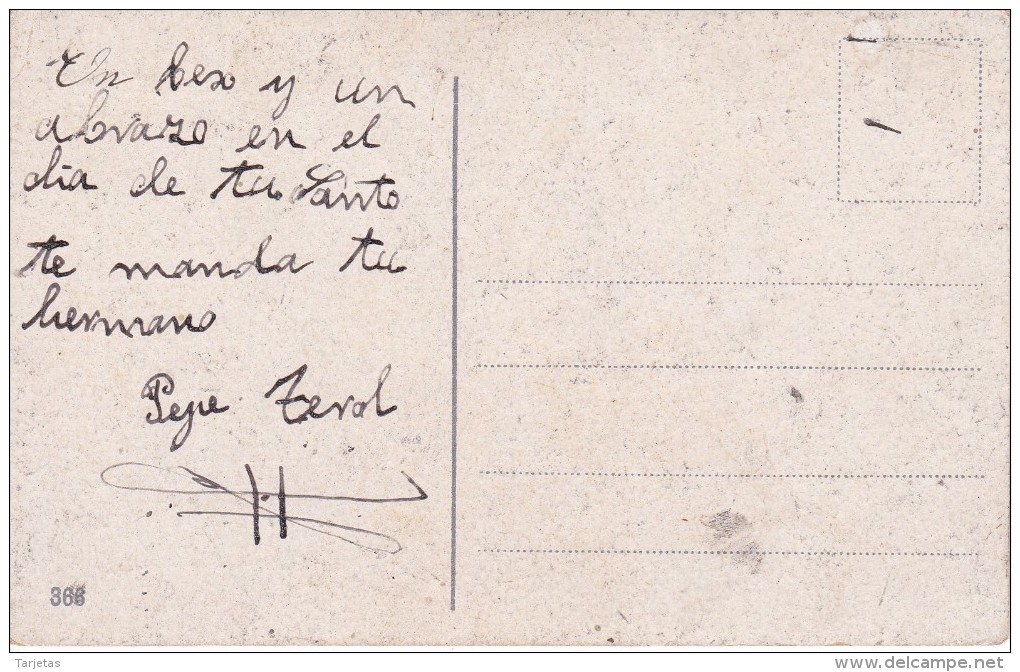 Un beso y un
abrazo en el
dia de tu Santo
te manda tu
hermano
Pepe Terol
366
Tarjetas
www.delcampe.net